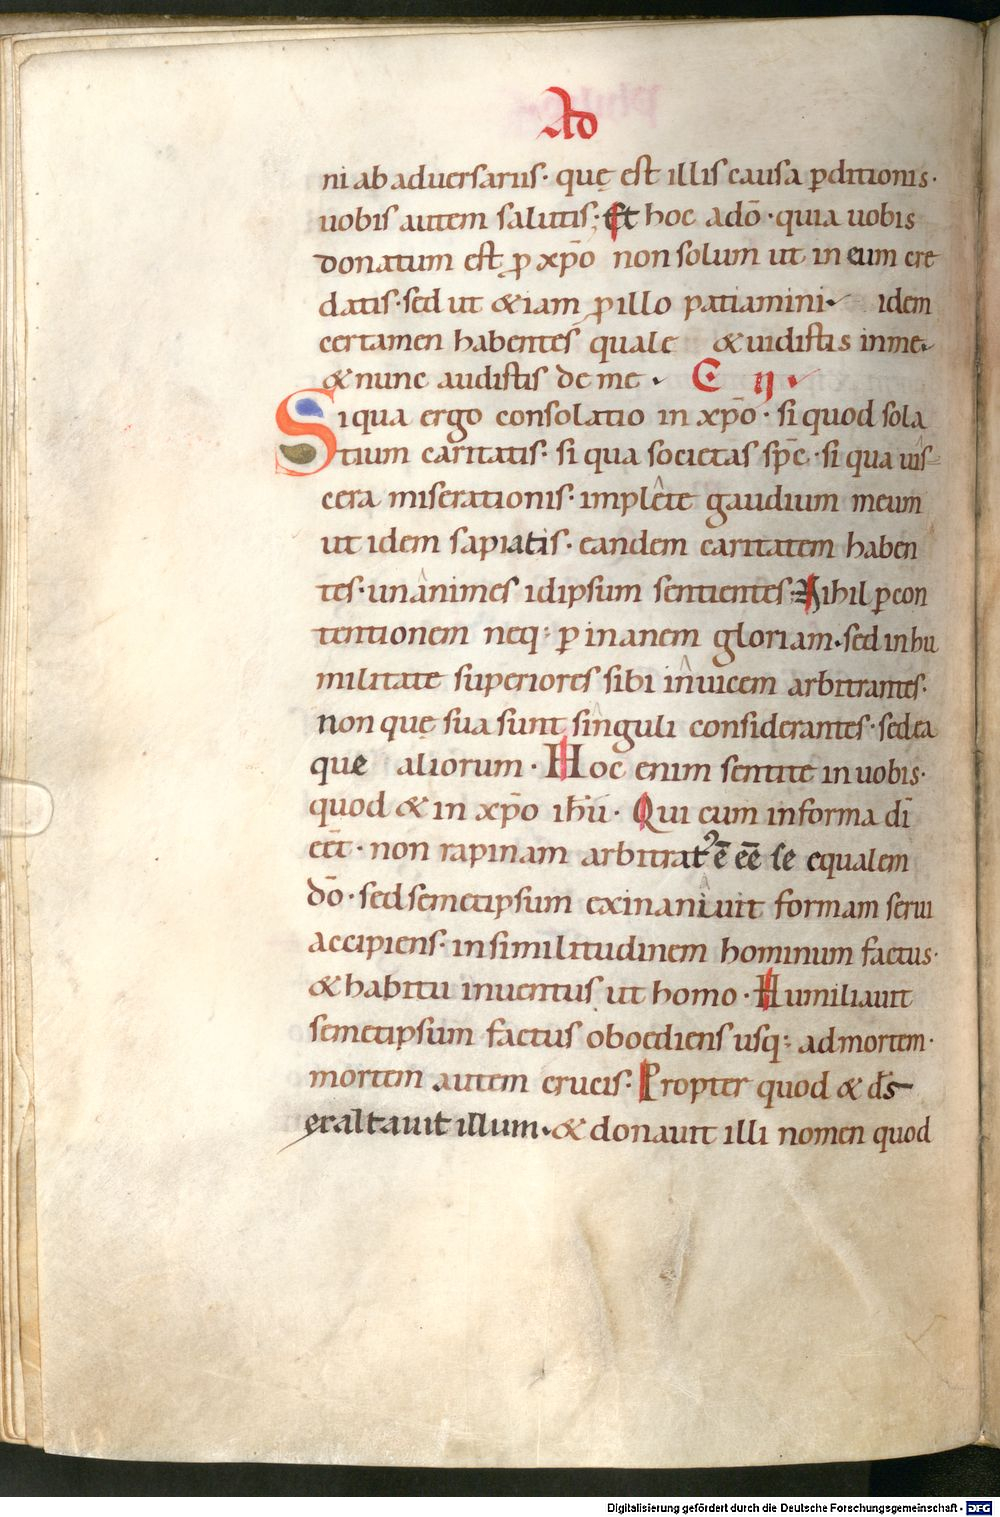 Ad
ni ab aduersariis· quę est illis causa p̱ditionis·
uobis autem salutis; Et hoc a do̅· quia uobis
donatum est p̱ xp̅o non solum ut in eum cre
datis· sed ut &iam p̱ illo patiamini· idem
certamen habentes quale & uidistis in me·
& nunc audistis de me· C· II·
Siqua ergo consolatio in xp̅o· si quod sola
tium caritatis· si qua societas sp̅c· si qua uis
cera miserationis· implête gaudium meum
ut idem sapiatis· eandem caritatem haben
tes· unânimes idipsum sentientes; Nihil p̱ con
tentionem neq; p̱ inanem gloriam· sed in hu
militate superiores sibi inuicem arbitrantes·
non quę sua sunt singuli considerantes· sed ea
que aliorum· Hoc enim sentite in uobis·
quod & in xp̅o ih̅u· Qui cum in forma di̅
eet̅· non rapinam arbitratꝰ e̅ ee̅ se equalem
do̅· sed semetipsum exinaniuit formam serui
accipiens· in similitudinem hominum factus·
& habitu inuentus ut homo· Humiliauit
semetipsum factus oboediens usq; ad mortem·
mortem autem crucis· Propter quod & ds̅
exaltauit illum· & donauit illi nomen quod
Digitalisierung gefördert durch die Deutsche Forschungsgemeinschaft - DFG